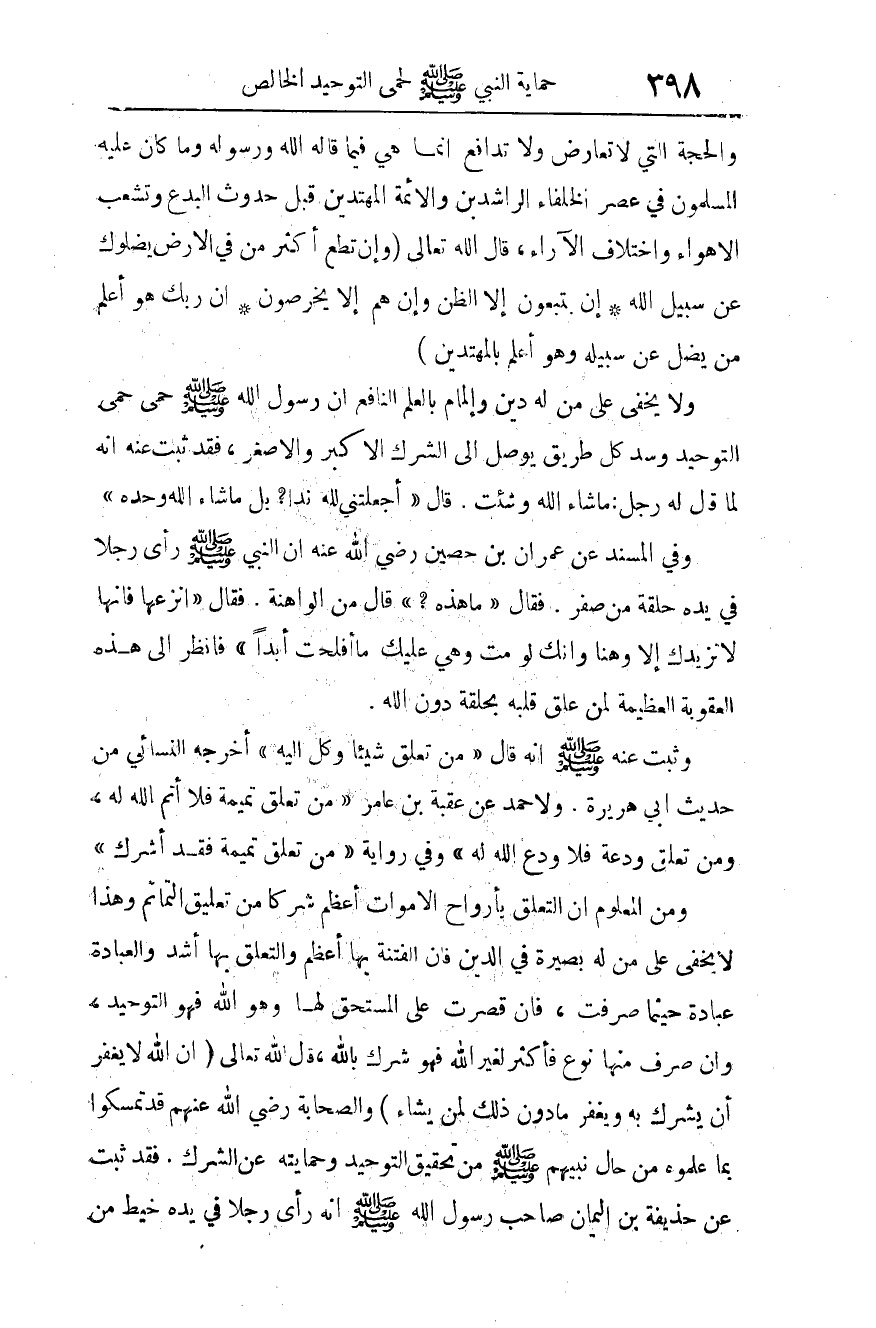 ٣٩٨ حماية النبي ﷺ لحمى التوحيد الخالص
والحجة التي لا تعارض ولا تدافع انمـا هي فيما قاله الله ورسوله وما كان عليه
المسلمون في عصر الخلفاء الراشدين والائمة المهتدين قبل حدوث البدع وتشعب
الاهواء واختلاف الآراء، قال الله تعالى (وإن تطع أكثر من في الارض يضلوك
عن سبيل الله * إن يتبعون إلا الظن وإن هم إلا يخرصون * ان ربك هو أعلم
من يضل عن سبيله وهو أعلم بالمهتدين )
ولا يخفى على من له دين وإلمام بالعلم النافع ان رسول الله ﷺ حمى حمى
التوحيد وسد كل طريق يوصل الى الشرك الاكبر والاصغر ، فقد ثبت عنه انه
لما قال له رجل: ماشاء الله وشئت . قال « أجعلتني لله ندا؟ بل ماشاء الله وحده »
وفي المسند عن عمران بن حصين رضي الله عنه ان النبي ﷺ رأى رجلا
في يده حلقة من صفر . فقال « ماهذه ؟ » قال من الواهنة . فقال «انزعها فانها
لا تزيدك إلا وهنا وانك لو مت وهي عليك ماأفلحت أبداً » فانظر الى هـذه
العقوبة العظيمة لمن علق قلبه بحلقة دون الله .
وثبت عنه ﷺ انه قال « من تعلق شيئا وكل اليه » أخرجه النسائي من
حديث ابي هريرة . ولاحمد عن عقبة بن عامر « من تعلق تميمة فلا أتم الله له ،
ومن تعلق ودعة فلا ودع الله له » وفي رواية « من تعلق تميمة فقـد أشرك »
ومن المعلوم ان التعلق بأرواح الاموات أعظم شركا من تعليق التمائم وهذا
لا يخفى على من له بصيرة في الدين فان الفتنة بها أعظم والتعلق بها أشد والعبادة
عبادة حيثما صرفت ، فان قصرت على المستحق لهـا وهو الله فهو التوحيد ،
وان صرف منها نوع فأكثر لغير الله فهو شرك بالله ، قال الله تعالى ( ان الله لا يغفر
أن يشرك به ويغفر مادون ذلك لمن يشاء ) والصحابة رضي الله عنهم قد تمسكوا
بما علموه من حال نبيهم ﷺ من تحقيق التوحيد وحمايته عن الشرك . فقد ثبت
عن حذيفة بن اليمان صاحب رسول الله ﷺ انه رأى رجلا في يده خيط من